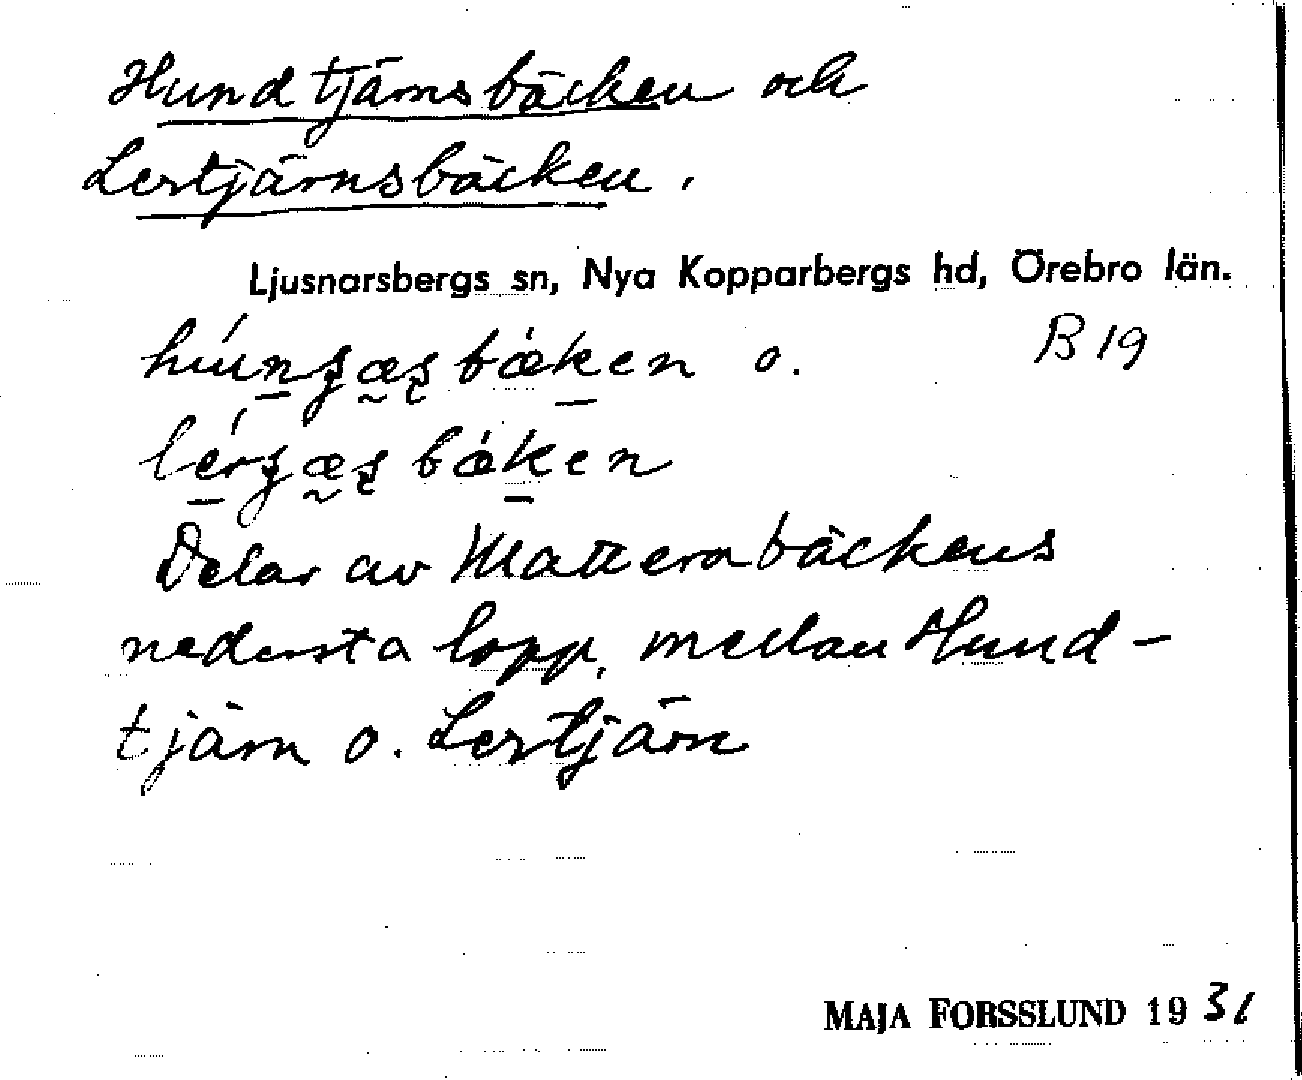 Hundtjärnsbäcken och
Lertjärnsbäcken.
Ljusnarsbergs sn, Nya Kopparbergs hd, Örebro län.
o. B 19
Delar av Matterabäckens
nedersta lopp, mellan Hund-
tjärn o. Lertjärn
MAJA FORSSLUND 1931